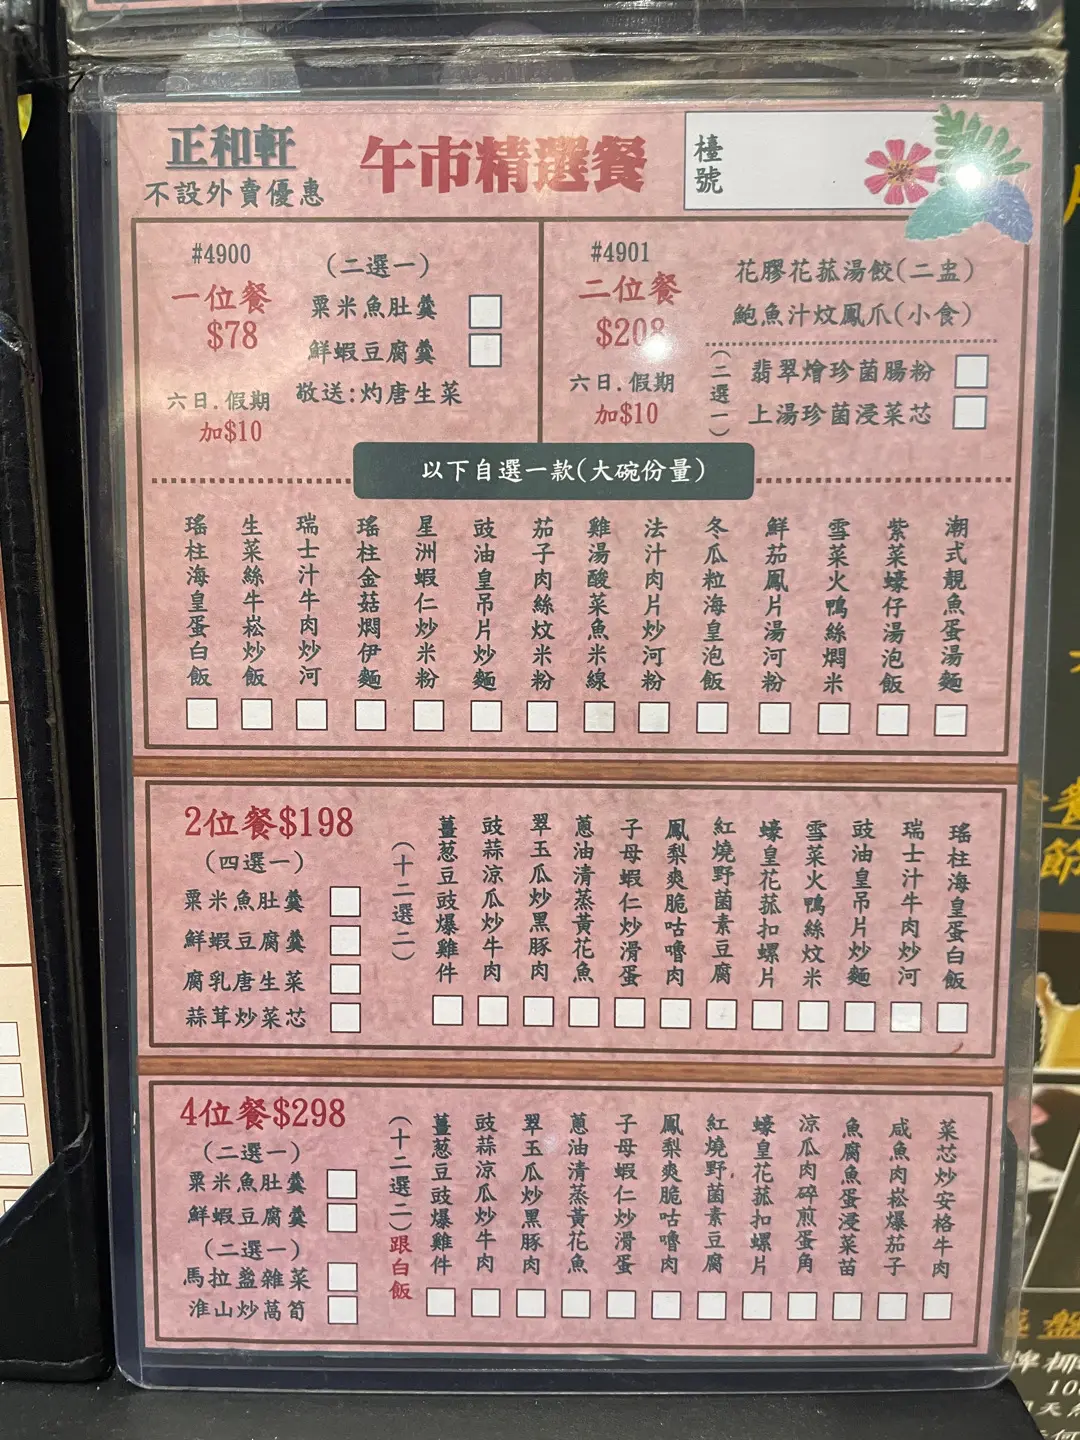 正和軒
不設外賣優惠
午市精選餐
檯號
#4900
一位餐
$78
六日.假期
加$10
(二選一)
粟米魚肚羹
鮮蝦豆腐羹
敬送:灼唐生菜
#4901
二位餐
$208
六日.假期
加$10
花膠花菰湯餃(二盅)
鮑魚汁炆鳳爪(小食)
(二選一)
翡翠燴珍菌腸粉
上湯珍菌浸菜芯
以下自選一款(大碗份量)
瑤柱海皇蛋白飯
生菜絲牛崧炒飯
瑞士汁牛肉炒河
瑤柱金菇燜伊麵
星洲蝦仁炒米粉
豉油皇吊片炒麵
茄子肉絲炆米粉
雞湯酸菜魚米線
法汁肉片炒河粉
冬瓜粒海皇泡飯
鮮茄鳳片湯河粉
雪菜火鴨絲燜米
紫菜蠔仔湯泡飯
潮式靚魚蛋湯麵
2位餐$198
(四選一)
粟米魚肚羹
鮮蝦豆腐羹
腐乳唐生菜
蒜茸炒菜芯
(十二選二)
薑葱豆豉爆雞件
豉蒜涼瓜炒牛肉
翠玉瓜炒黑豚肉
蔥油清蒸黃花魚
子母蝦仁炒滑蛋
鳳梨爽脆咕嚕肉
紅燒野菌素豆腐
蠔皇花菰扣螺片
雪菜火鴨絲炆米
豉油皇吊片炒麵
瑞士汁牛肉炒河
瑤柱海皇蛋白飯
4位餐$298
(二選一)
粟米魚肚羹
鮮蝦豆腐羹
(二選一)
馬拉盞雜菜
淮山炒萵筍
(十二選二)跟白飯
薑葱豆豉爆雞件
豉蒜涼瓜炒牛肉
翠玉瓜炒黑豚肉
蔥油清蒸黃花魚
子母蝦仁炒滑蛋
鳳梨爽脆咕嚕肉
紅燒野菌素豆腐
蠔皇花菰扣螺片
涼瓜肉碎煎蛋角
魚腐魚蛋浸菜苗
咸魚肉崧爆茄子
菜芯炒安格牛肉